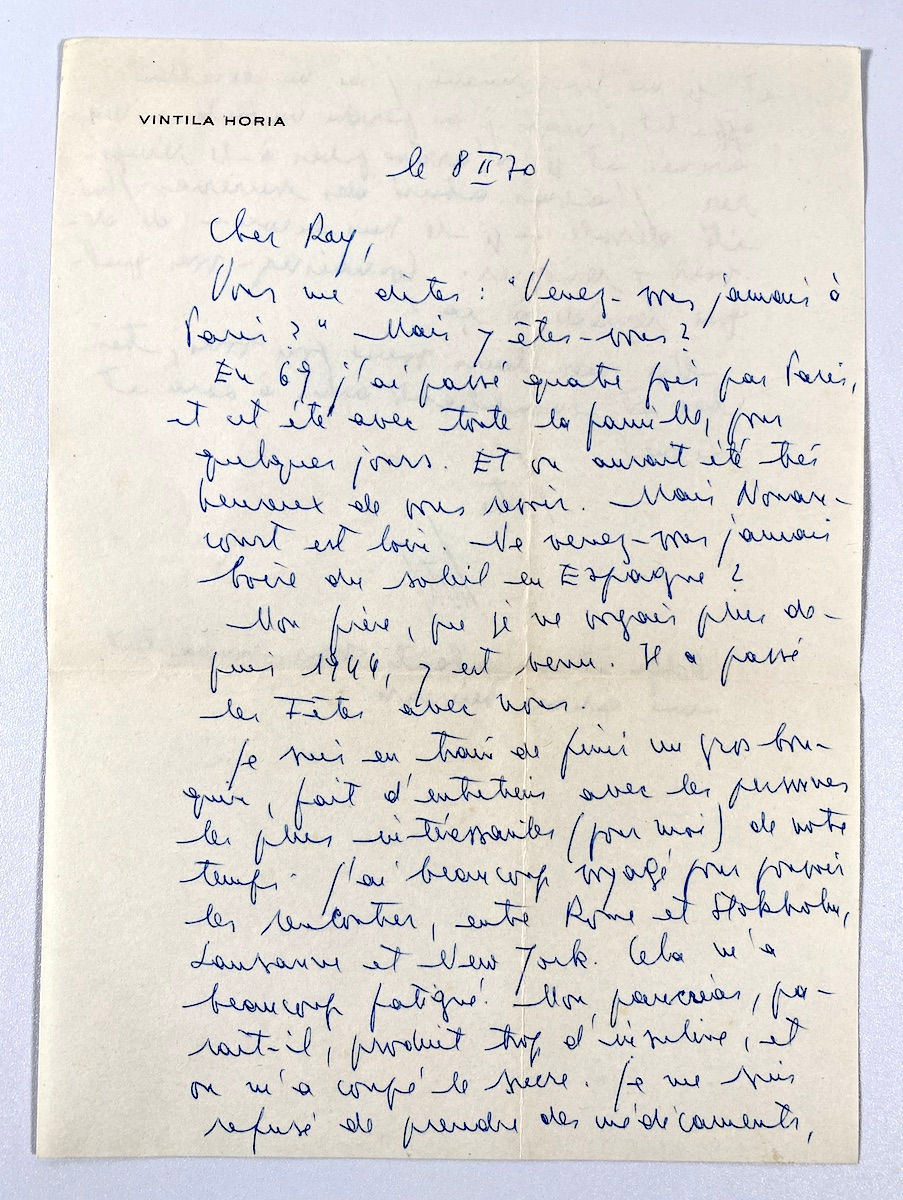 VINTILA HORIA
le 8 II 70
Cher Ray,
Vous me dites : "Venez-vous jamais à
Paris ? " Mais y êtes-vous ?
En 69 j'ai passé quatre fois par Paris,
et cet été avec toute la famille, pour
quelques jours. Et on aurait été très
heureux de vous revoir. Mais Nonan-
court est loin. Ne venez-vous jamais
boire du soleil en Espagne ?
Mon frère, que je ne voyais plus de-
puis 1944, y est venu. Il a passé
les Fêtes avec nous.
Je suis en train de finir un gros bou-
quin, fait d'entretiens avec les personnes
les plus intéressantes (pour moi) de notre
temps. J'ai beaucoup voyagé pour pouvoir
les rencontrer, entre Rome et Stokholm,
Lausanne et New York. Cela m'a
beaucoup fatigué. Mon pancréas, pa-
rait-il, produit trop d'insuline, et
on m'a coupé le sucre. Je me suis
refusé de prendre des médicaments,